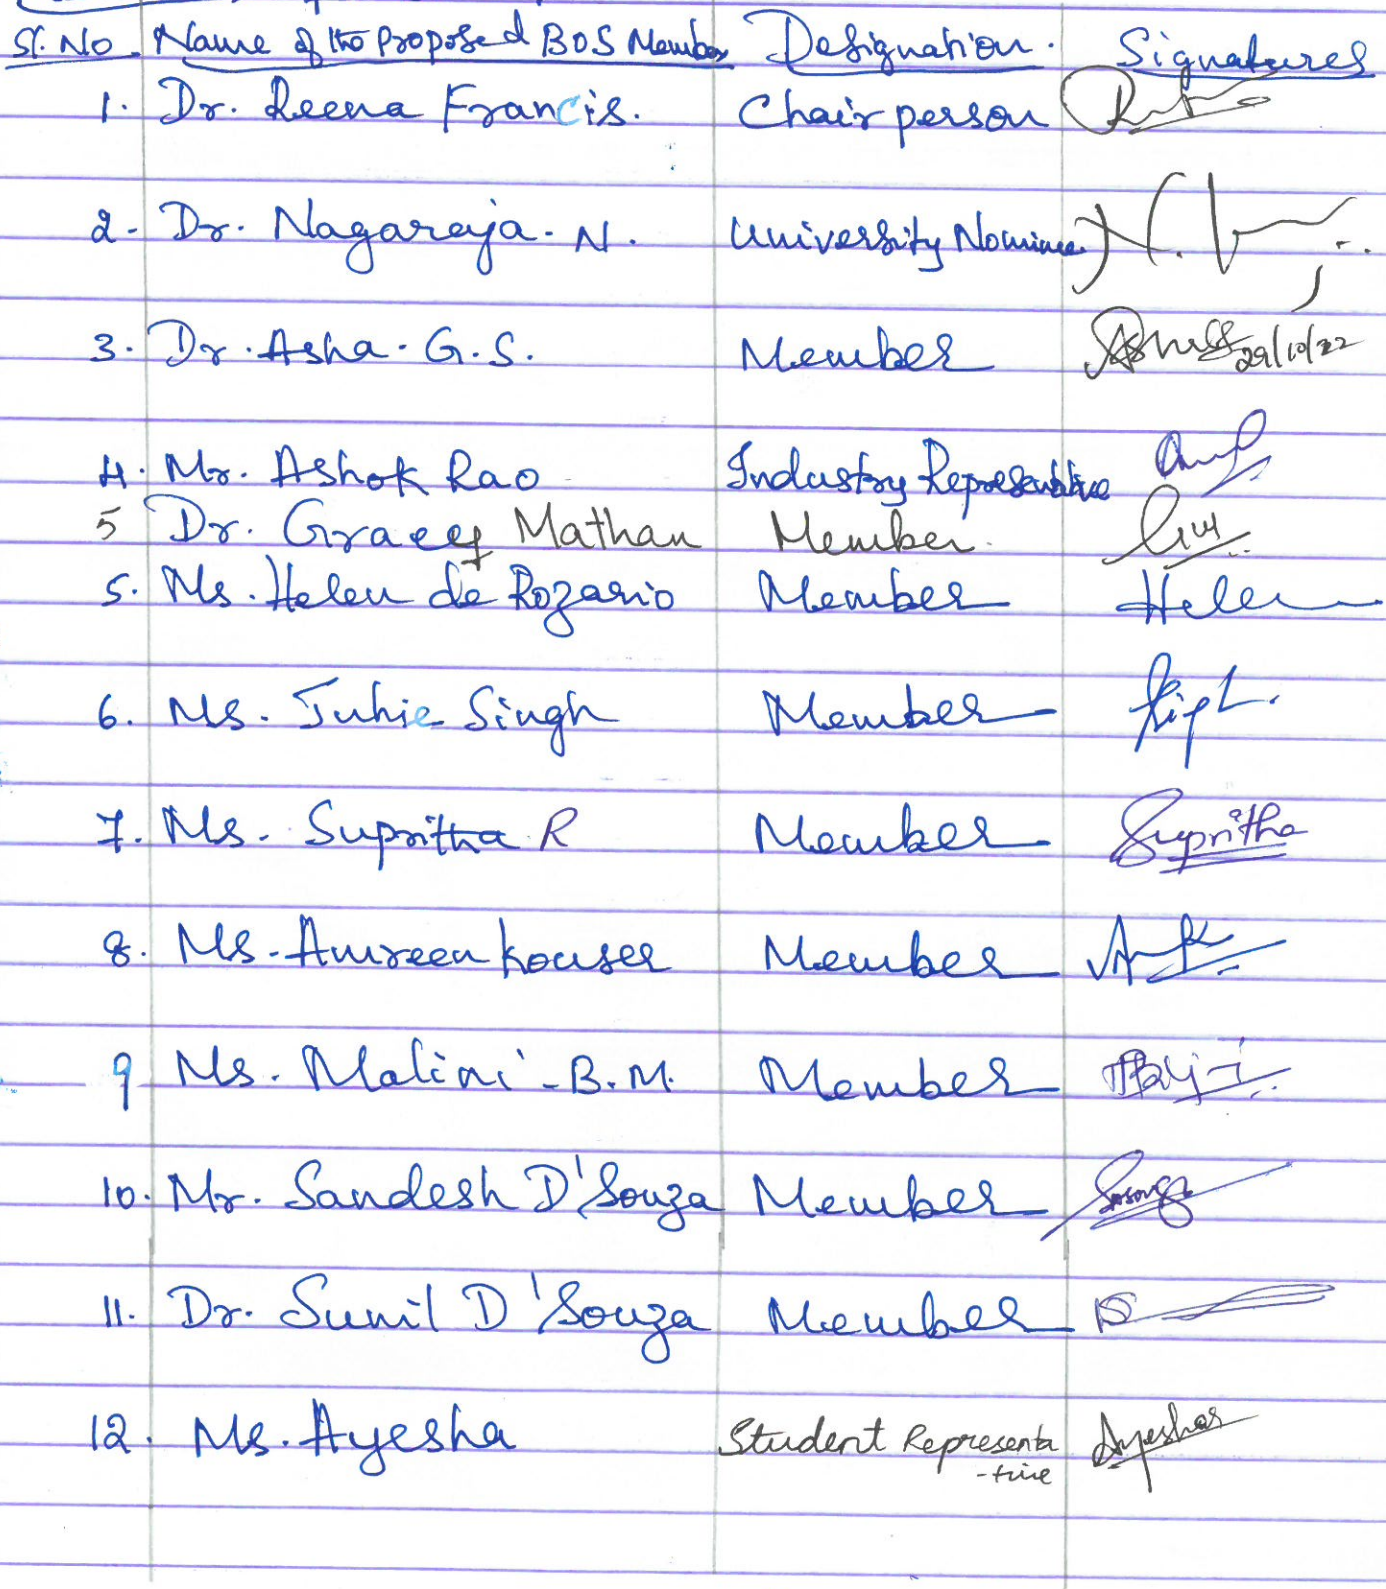 Sl. No. Name of the Proposed BOS Member Designation. Signatures
1. Dr. Reena Francis. Chairperson
2. Dr. Nagaraja. N. University Nominee
3. Dr. Asha. G.S. Member 29/10/22
4. Mr. Ashok Rao Industry Representative
5 Dr. Gracey Mathan Member.
5. Ms. Helen de Rozario Member Helen
6. Ms. Juhie Singh Member
7. Ms. Supritha R Member Supritha
8. Ms. Amreen Kouser Member
9 Ms. Malini - B.M. Member
10. Mr. Sandesh D'Souza Member
11. Dr. Sunil D'Souza Member
12. Ms. Ayesha Student Representa Ayesha
-tive